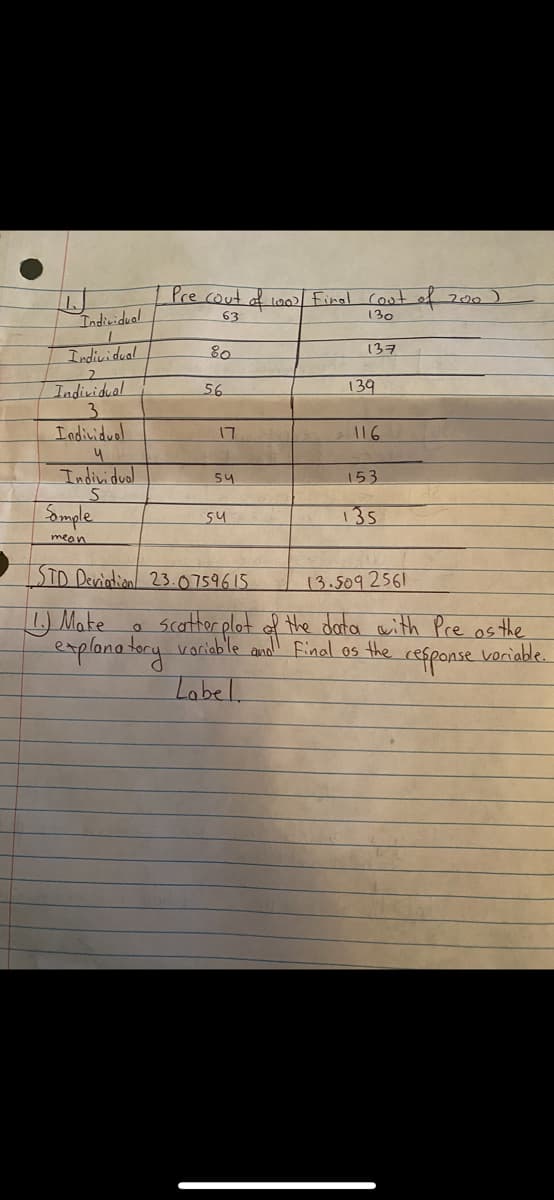 1.) Pre (out of 100) Final (out of 200)
Individual 1 63 130
Individual 2 80 137
Individual 3 56 139
Individual 4 17 116
Individual 5 54 153
Sample mean 54 135
STD Deviation 23.0759615 13.5092561
1.) Make a scatterplot of the data with Pre as the
explanatory variable and Final as the response variable.
Label.